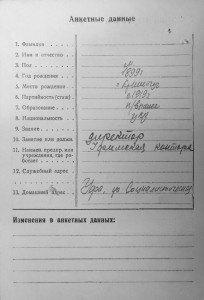 Анкетные данные
1. Фамилия
2. Имя и отчество
3. Пол м
4. Год рождения 1899 г.
5. Место рождения г. Армянск
6. Партийность (стаж) с 1919 г.
7. Образование н/высшее
8. Национальность
9. Звание
10. Занятие или должн. директор
11. Наимен. предпр. или учреждения, где работает контора
12. Служебный адрес
13. Домашний адрес Уфа, ул. Социалистическая
Изменения в анкетных данных: